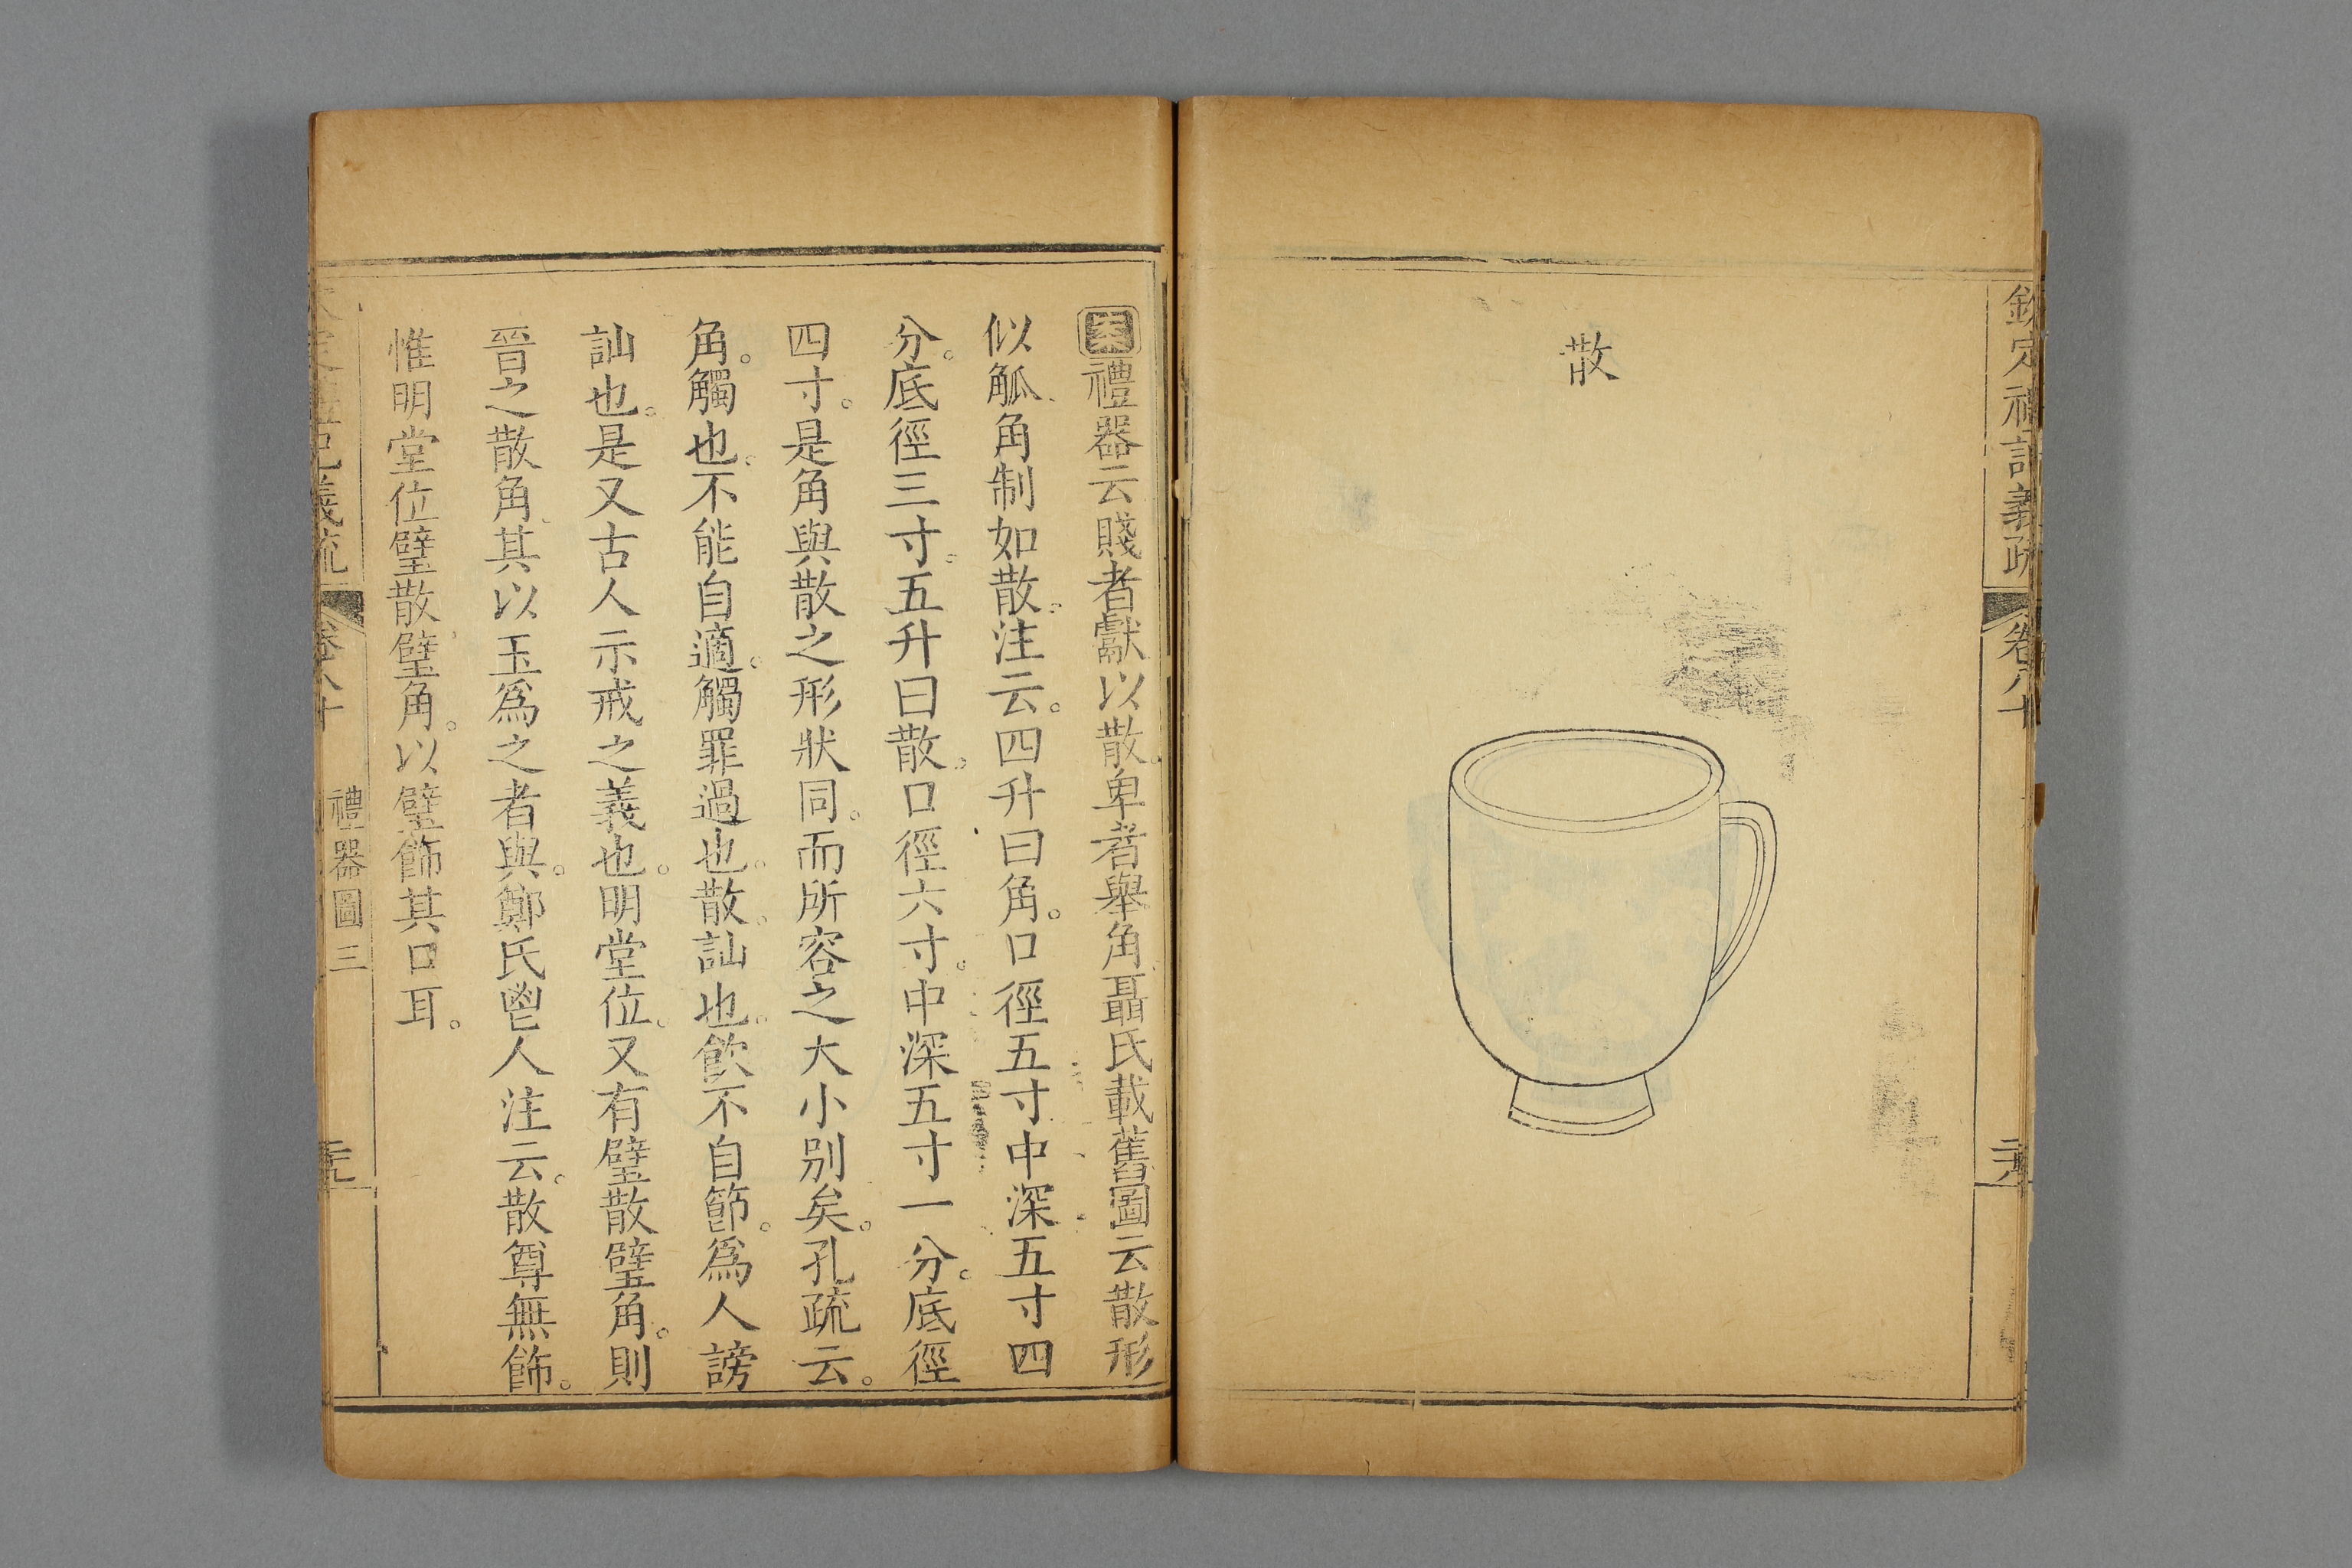 欽定禮記義疏 卷八十
二十八
散
案禮器云賤者獻以散卑者舉角聶氏載舊圖云散形
似觚角制如散。注云。四升曰角。口徑五寸中深五寸四
分。底徑三寸。五升曰散。口徑六寸。中深五寸一分。底徑
四寸。是角與散之形狀同。而所容之大小別矣。孔疏云。
角。觸也。不能自適。觸罪過也。散。訕也。飲不自節。爲人謗
訕也。是又古人示戒之義也。明堂位。又有璧散璧角。則
晉之散角。其以玉爲之者與。鄭氏鬯人注云。散尊無飾。
惟明堂位璧散璧角。以璧飾其口耳。
欽定禮記義疏 卷八十 禮器圖三
二十九